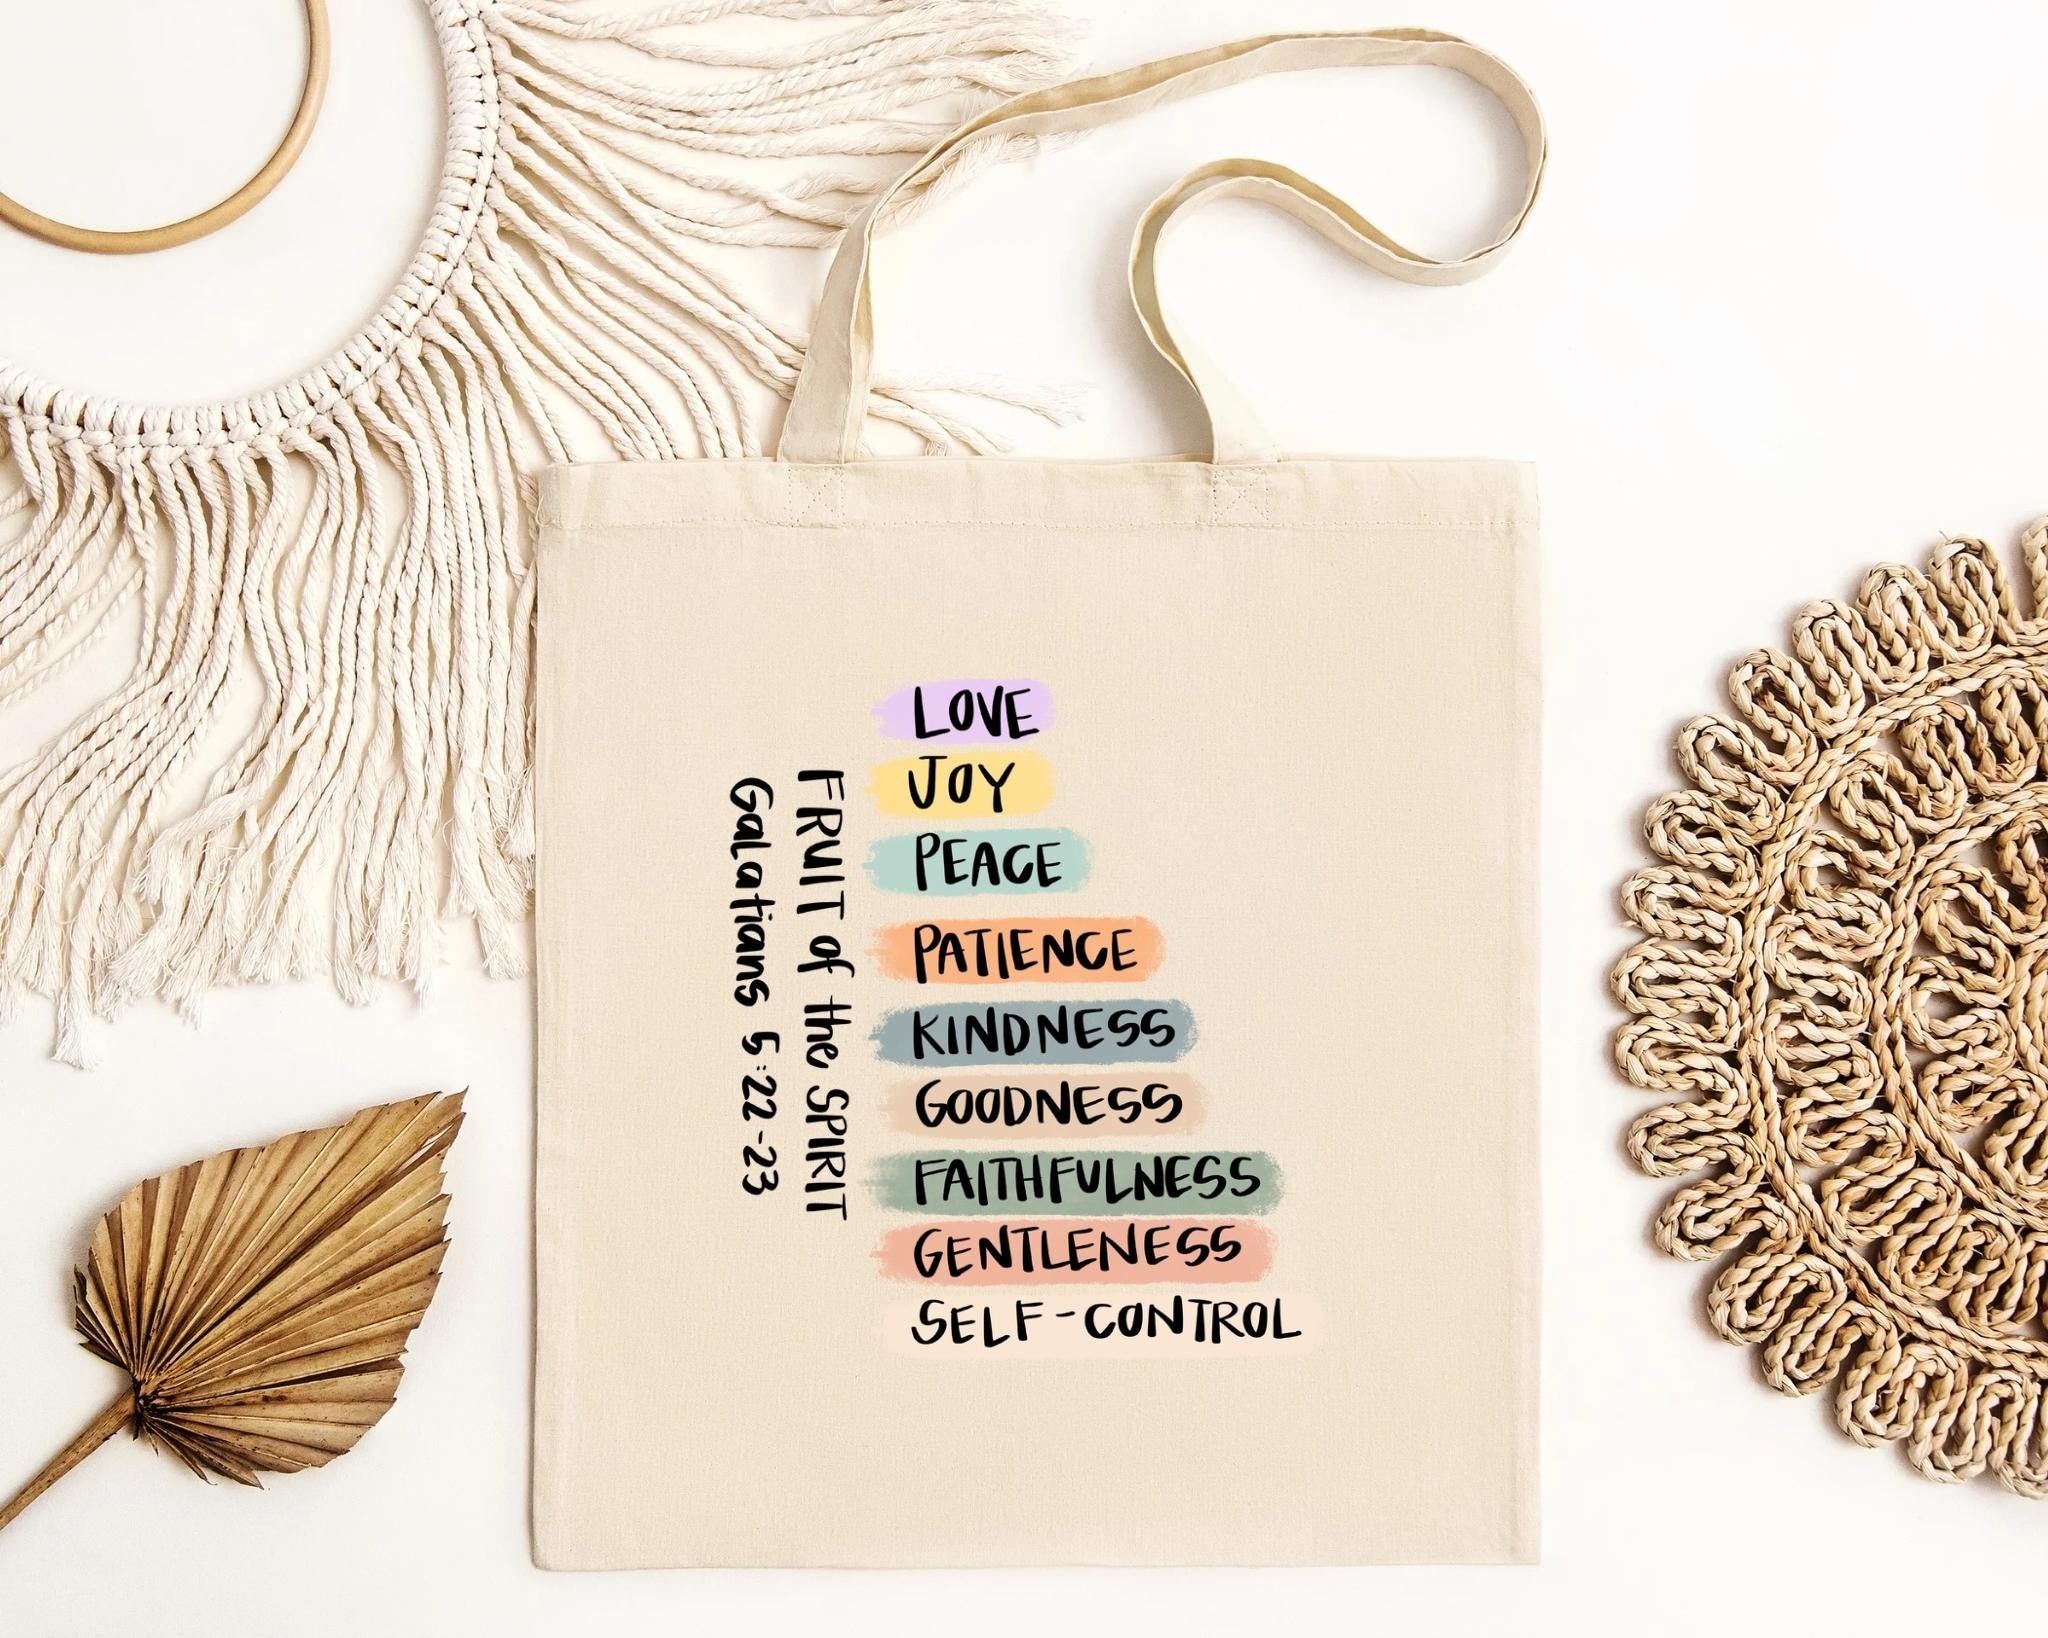 LOVE
JOY
PEACE
PATIENCE
KINDNESS
GOODNESS
FAITHFULNESS
GENTLENESS
SELF-CONTROL
FRUIT of the SPIRIT
Galatians 5:22-23